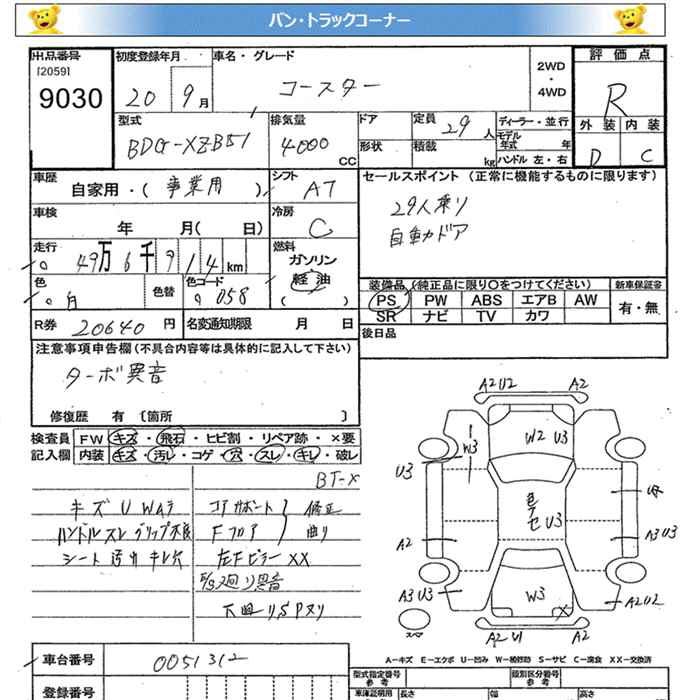 バン・トラックコーナー
出品番号
[2059]
9030
初度登録年月
20 9月
車名・グレード
コースター
2WD
・
4WD
評価点
R
外装 内装
D C
型式
BDG-XZB51
排気量
4000
CC
ドア
形状
定員
29人
積載
kg
ディーラー・並行
モデル年式 年
ハンドル 左・右
車歴
自家用・(事業用)
シフト
AT
セールスポイント (正常に機能するものに限ります)
29人乗り
自動ドア
車検
年 月( 日)
冷房
C
走行
49万6千914km
燃料
ガソリン
軽油
( )
色
白
色替
色コード
058
装備品 (純正品に限り○をつけてください)
PS PW ABS エアB AW
SR ナビ TV カワ
新車保証書
有・無
R券 20640円
名変通知期限 月 日
後日品
注意事項申告欄 (不具合内容等は具体的に記入して下さい)
ターボ異音
修復歴 有 〔箇所 〕
検査員
記入欄
FW キズ・飛石・ヒビ割・リペア跡・×要
内装 キズ・汚レ・コゲ・穴・スレ・キレ・破レ
BT-X
キズ U Wムラ
ハンドルスレ グリップ不良
シート 汚れ キレ穴
コアサポート
Fフロア
修正
曲り
左Fピラー XX
E/g廻り異音
下廻りSPヌリ
A2U2 A2
W3
W2 U3
U3
A2
A3U3
A3U3
U3
W3
X
A2U2
A2U1 A2
スペア
A-キズ E-エクボ U-凹み W-補修跡 S-サビ C-腐食 XX-交換済
車台番号 0051312
登録番号
型式指定番号
参考
類別区分番号
参考
車庫証明用
参考
長さ
幅
高さ